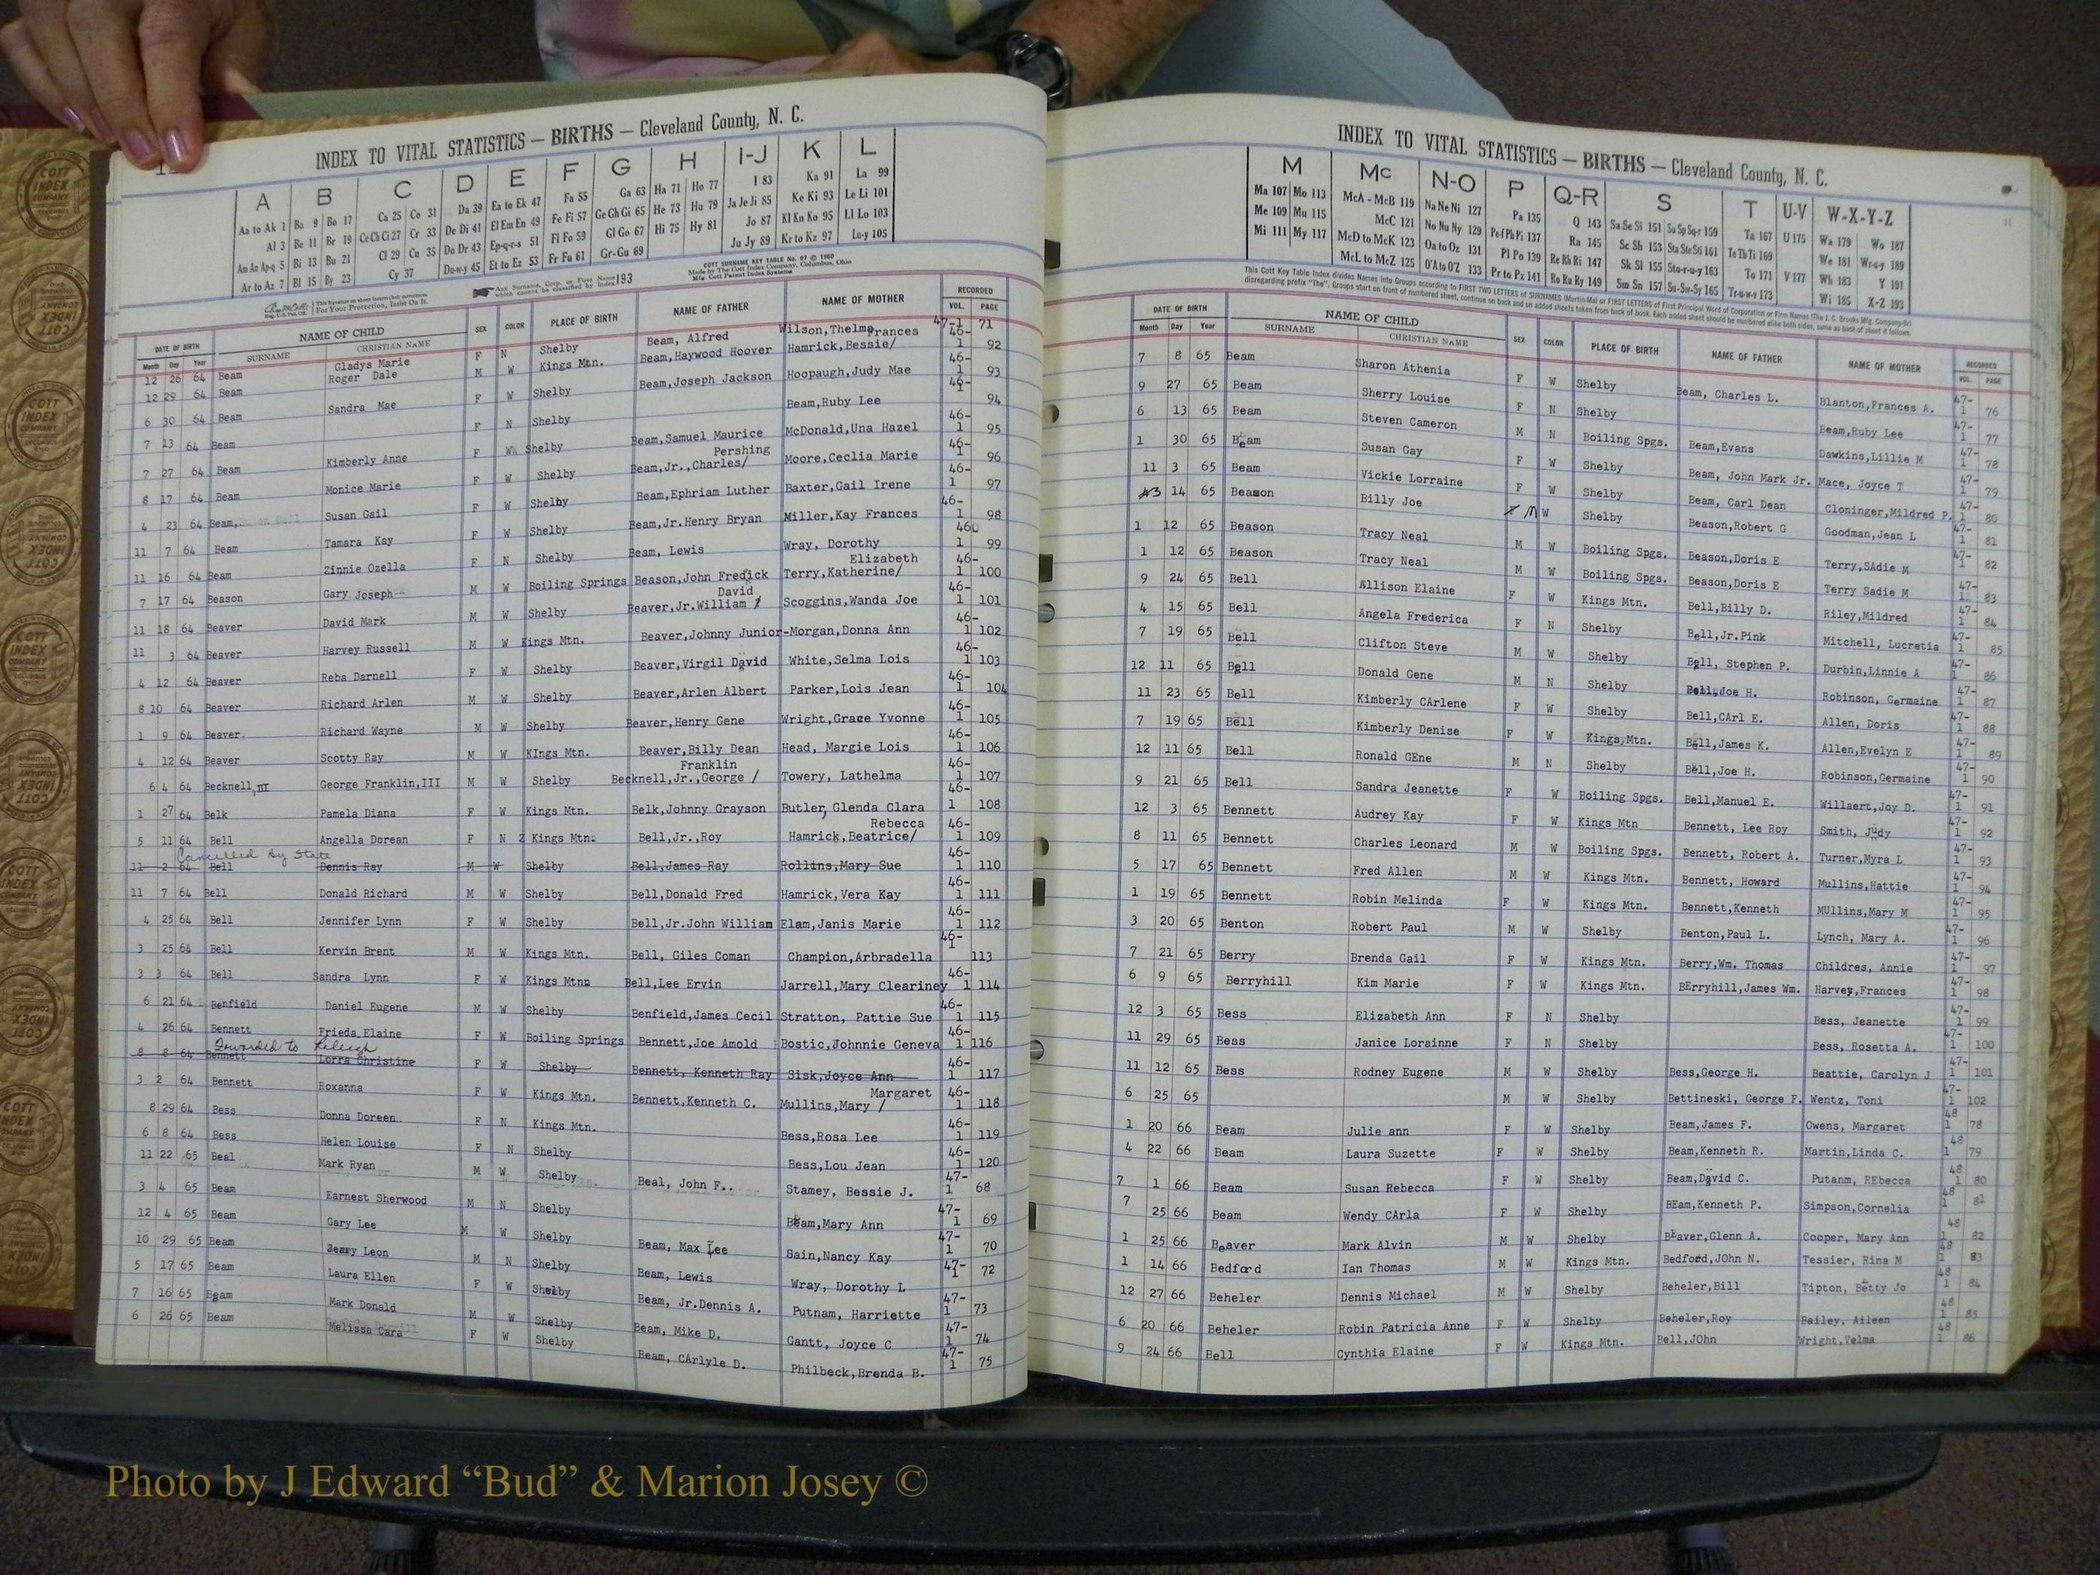 INDEX TO VITAL STATISTICS — BIRTHS — Cleveland County, N. C.
A B C D E F G H I-J K L
Aa to Ak 1 Ba 9 Bo 17 Ca 25 Co 31 Da 39 Ea to Ek 47 Fa 55 Ga 63 Ha 71 Ho 77 I 83 Ka 91 La 99
Al 3 Be 11 Br 19 Ce Ch Ci 27 Cr 33 De Di 41 El Em En 49 Fe Fi 57 Ge Gh Gi 65 He 73 Hu 79 Ja Je Ji 85 Ke Ki 93 Le Li 101
Am An Ap-q 5 Bi 13 Bu 21 Cl 29 Cu 35 Do Dr 43 Ep-q-r-s 51 Fl Fo 59 Gl Go 67 Hi 75 Hy 81 Jo 87 Kl Kn Ko 95 Ll Lo 103
Ar to Az 7 Bl 15 By 23 Cy 37 Du-w-y 45 Et to Ez 53 Fr Fu 61 Gr-Gu 69 Ju Jy 89 Kr to Kz 97 Lu-y 105
COTT SURNAME KEY TABLE No. 97 © 1960
Made by The Cott Index Company, Columbus, Ohio
DATE OF BIRTH NAME OF CHILD SEX COLOR PLACE OF BIRTH NAME OF FATHER NAME OF MOTHER RECORDED
Month Day Year SURNAME CHRISTIAN NAME VOL. PAGE
12 26 64 Beam Gladys Marie F N Shelby Beam, Alfred Wilson,Thelma 47-1 71
12 29 64 Beam Roger Dale M W Kings Mtn. Beam,Haywood Hoover Hamrick,Bessie/ Frances 46-1 92
6 30 64 Beam Sandra Mae F W Shelby Beam,Joseph Jackson Hoopaugh,Judy Mae 46-1 93
7 13 64 Beam F N Shelby Beam,Ruby Lee 46-1 94
7 27 64 Beam Kimberly Anne F W Shelby Beam,Samuel Maurice McDonald,Una Hazel 46-1 95
8 17 64 Beam Monice Marie F W Shelby Beam,Jr.,Charles/ Pershing Moore,Ceclia Marie 46-1 96
4 23 64 Beam, Susan Gail F W Shelby Beam,Ephriam Luther Baxter,Gail Irene 46-1 97
11 7 64 Beam Tamara Kay F W Shelby Beam,Jr.Henry Bryan Miller,Kay Frances 46-1 98
11 16 64 Beam Zinnie Ozella F N Shelby Beam, Lewis Wray, Dorothy 460 1 99
7 17 64 Beason Gary Joseph M W Boiling Springs Beason,John Fredick Terry,Katherine/ Elizabeth 46-1 100
11 18 64 Beaver David Mark M W Shelby Beaver,Jr.William / David Scoggins,Wanda Joe 46-1 101
11 3 64 Beaver Harvey Russell M W Kings Mtn. Beaver,Johnny Junior- Morgan,Donna Ann 46-1 102
4 12 64 Beaver Reba Darnell F W Shelby Beaver,Virgil David White,Selma Lois 46-1 103
8 10 64 Beaver Richard Arlen M W Shelby Beaver,Arlen Albert Parker,Lois Jean 46-1 104
1 9 64 Beaver. Richard Wayne M W Shelby Beaver,Henry Gene Wright,Grace Yvonne 46-1 105
4 12 64 Beaver Scotty Ray M W KIngs Mtn. Beaver,Billy Dean Head, Margie Lois 46-1 106
6 4 64 Becknell,III George Franklin,III M W Shelby Becknell,Jr.,George / Franklin Towery, Lathelma 46-1 107
1 27 64 Belk Pamela Diana F W Kings Mtn. Belk,Johnny Grayson Butler, Glenda Clara 46-1 108
5 11 64 Bell Angella Dorean F N Kings Mtn. Bell,Jr.,Roy Hamrick,Beatrice/ Rebecca 46-1 109
Cancelled by State
11 2 64 Bell Dennis Ray M W Shelby Bell,James Ray Rollins,Mary Sue 46-1 110
11 7 64 Bell Donald Richard M W Shelby Bell,Donald Fred Hamrick,Vera Kay 46-1 111
4 25 64 Bell Jennifer Lynn F W Shelby Bell,Jr.John William Elam,Janis Marie 46-1 112
3 25 64 Bell Kervin Brent M W Kings Mtn. Bell, Giles Coman Champion,Arbradella 46-1 113
3 3 64 Bell Sandra Lynn F W Kings Mtnn Bell,Lee Ervin Jarrell,Mary Cleariney 46-1 114
6 21 64 Benfield Daniel Eugene M W Shelby Benfield,James Cecil Stratton, Pattie Sue 46-1 115
4 26 64 Bennett Frieda Elaine F W Boiling Springs Bennett,Joe Amold Bostic,Johnnie Geneva 46-1 116
Fowarded to Raleigh
8 8 64 Bennett Lorra Christine F W Shelby Bennett, Kenneth Ray Sisk,Joyce Ann 46-1 117
3 2 64 Bennett Roxanna F W Kings Mtn. Bennett,Kenneth C. Mullins,Mary / Margaret 46-1 118
8 29 64 Bess Donna Doreen F N Kings Mtn. Bess,Rosa Lee 46-1 119
6 8 64 Bess Helen Louise F N Shelby Bess,Lou Jean 46-1 120
11 22 65 Beal Mark Ryan M W Shelby Beal, John F.. Stamey, Bessie J. 47-1 68
3 4 65 Beam Earnest Sherwood M N Shelby Beam,Mary Ann 47-1 69
12 4 65 Beam Gary Lee M W Shelby Beam, Max Lee Sain,Nancy Kay 47-1 70
10 29 65 Beam Jerry Leon M N Shelby Beam, Lewis Wray, Dorothy L 47-1 72
5 17 65 Beam Laura Ellen F W Shelby Beam, Jr.Dennis A. Putnam, Harriette 47-1 73
7 16 65 Beam Mark Donald M W Shelby Beam, Mike D. Gantt, Joyce C 47-1 74
6 26 65 Beam Melissa Cara F W Shelby Beam, CArlyle D. Philbeck,Brenda B. 47-1 75
INDEX TO VITAL STATISTICS — BIRTHS — Cleveland County, N. C.
M Mc N-O P Q-R S T U-V W-X-Y-Z
Ma 107 Mo 113 McA - McB 119 Na Ne Ni 127 Pa 135 Q 143 Sa Se Si 151 So Sp Sq-r 159 Ta 167 U 175 Wa 179 Wo 187
Me 109 Mu 115 McC 121 No Nu Ny 129 Pe-f Ph Pi 137 Ra 145 Sc Sh 153 Sta Ste Sti 161 Te Th Ti 169 We 181 Wr-u-y 189
Mi 111 My 117 McD to McK 123 Oa to Oz 131 Pl Po 139 Re Rh Ri 147 Sk Sl 155 Sto-r-u-y 163 To 171 V 177 Wh 183 Y 191
McL to McZ 125 O'A to O'Z 133 Pr to Pz 141 Ro Ru Ry 149 Sm Sn 157 Su-Sw-Sy 165 Tr-u-w-y 173 Wi 185 X-Z 193
DATE OF BIRTH NAME OF CHILD SEX COLOR PLACE OF BIRTH NAME OF FATHER NAME OF MOTHER RECORDED
Month Day Year SURNAME CHRISTIAN NAME VOL. PAGE
7 8 65 Beam Sharon Athenia F W Shelby Beam, Charles L. Blanton,Frances A. 47-1 76
9 27 65 Beam Sherry Louise F N Shelby Beam,Ruby Lee 47-1 77
6 13 65 Beam Steven Cameron M N Boiling Spgs. Beam,Evans Dawkins,Lillie M 47-1 78
1 30 65 Beam Susan Gay F W Shelby Beam, John Mark Jr. Mace, Joyce T 47-1 79
11 3 65 Beam Vickie Lorraine F W Shelby Beam, Carl Dean Cloninger,Mildred P. 47-1 80
3 14 65 Beason Billy Joe M W Shelby Beason,Robert G Goodman,Jean L 47-1 81
1 12 65 Beason Tracy Neal M W Boiling Spgs. Beason,Doris E Terry,SAdie M 47-1 82
1 12 65 Beason Tracy Neal M W Boiling Spgs. Beason,Doris E Terry Sadie M 47-1 83
9 24 65 Bell Allison Elaine F W Kings Mtn. Bell,Billy D. Riley,Mildred 47-1 84
4 15 65 Bell Angela Frederica F N Shelby Bell,Jr.Pink Mitchell, Lucretia 47-1 85
7 19 65 Bell Clifton Steve M W Shelby Bell, Stephen P. Durbin,Linnie A 47-1 86
12 11 65 Bell Donald Gene M N Shelby Bell,Joe H. Robinson, Germaine 47-1 87
11 23 65 Bell Kimberly CArlene F W Shelby Bell,CArl E. Allen, Doris 47-1 88
7 19 65 Bell Kimberly Denise F W Kings Mtn. Bell,James K. Allen,Evelyn E 47-1 89
12 11 65 Bell Ronald GEne M N Shelby Bell,Joe H. Robinson,Germaine 47-1 90
9 21 65 Bell Sandra Jeanette F W Boiling Spgs. Bell,Manuel E. Willaert,Joy D. 47-1 91
12 3 65 Bennett Audrey Kay F W Kings Mtn Bennett, Lee Roy Smith, Judy 47-1 92
8 11 65 Bennett Charles Leonard M W Boiling Spgs. Bennett, Robert A. Turner,Myra L 47-1 93
5 17 65 Bennett Fred Allen M W Kings Mtn. Bennett, Howard Mullins,Hattie 47-1 94
1 19 65 Bennett Robin Melinda F W Kings Mtn. Bennett,Kenneth MUllins,Mary M 47-1 95
3 20 65 Benton Robert Paul M W Shelby Benton,Paul L. Lynch, Mary A. 47-1 96
7 21 65 Berry Brenda Gail F W Kings Mtn. Berry,Wm. Thomas Childres, Annie 47-1 97
6 9 65 Berryhill Kim Marie F W Kings Mtn. BErryhill,James Wm. Harvey,Frances 47-1 98
12 3 65 Bess Elizabeth Ann F N Shelby Bess, Jeanette 47-1 99
11 29 65 Bess Janice Lorainne F N Shelby Bess, Rosetta A. 47-1 100
11 12 65 Bess Rodney Eugene M W Shelby Bess,George H. Beattie, Carolyn J 47-1 101
6 25 65 M W Shelby Bettineski, George F. Wentz, Toni 47-1 102
1 20 66 Beam Julie ann F W Shelby Beam,James F. Owens, Margaret 48 1 78
4 22 66 Beam Laura Suzette F W Shelby Beam,Kenneth R. Martin,Linda C. 48 1 79
7 1 66 Beam Susan Rebecca F W Shelby Beam,David C. Putanm, REbecca 48 1 80
7 25 66 Beam Wendy CArla F W Shelby BEam,Kenneth P. Simpson,Cornelia 48 1 81
1 25 66 Beaver Mark Alvin M W Shelby BEaver,Glenn A. Cooper, Mary Ann 48 1 82
1 14 66 Bedford Ian Thomas M W Kings Mtn. Bedford,JOhn N. Tessier, Rina M 48 1 83
12 27 66 Beheler Dennis Michael M W Shelby Beheler,Bill Tipton, Betty Jo 48 1 84
6 20 66 Beheler Robin Patricia Anne F W Shelby Beheler,Roy Bailey, Aileen 48 1 85
9 24 66 Bell Cynthia Elaine F W Kings Mtn. Bell,JOhn Wright,Velma 48 1 86
Photo by J Edward “Bud” & Marion Josey ©